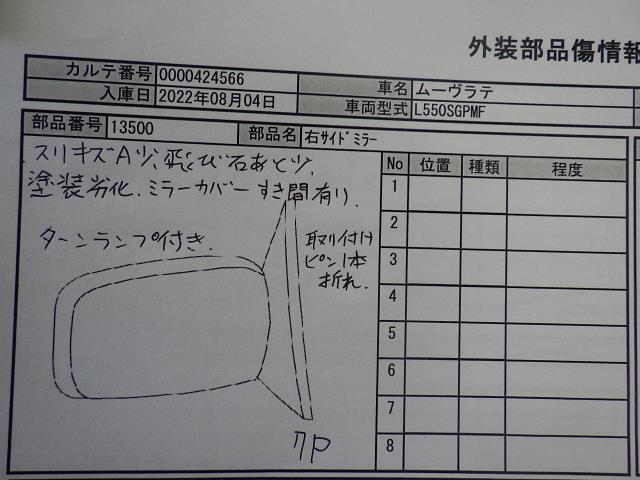 外装部品傷情報
カルテ番号 0000424566 車名 ムーヴラテ
入庫日 2022年08月04日 車両型式 L550SGPMF
部品番号 13500 部品名 右サイドミラー
スリキズA少、飛び石あと少、
塗装劣化、ミラーカバーすき間有り、
ターンランプ付き、
取り付け
ピン1本
折れ、
7P
No 位置 種類 程度
1
2
3
4
5
6
7
8